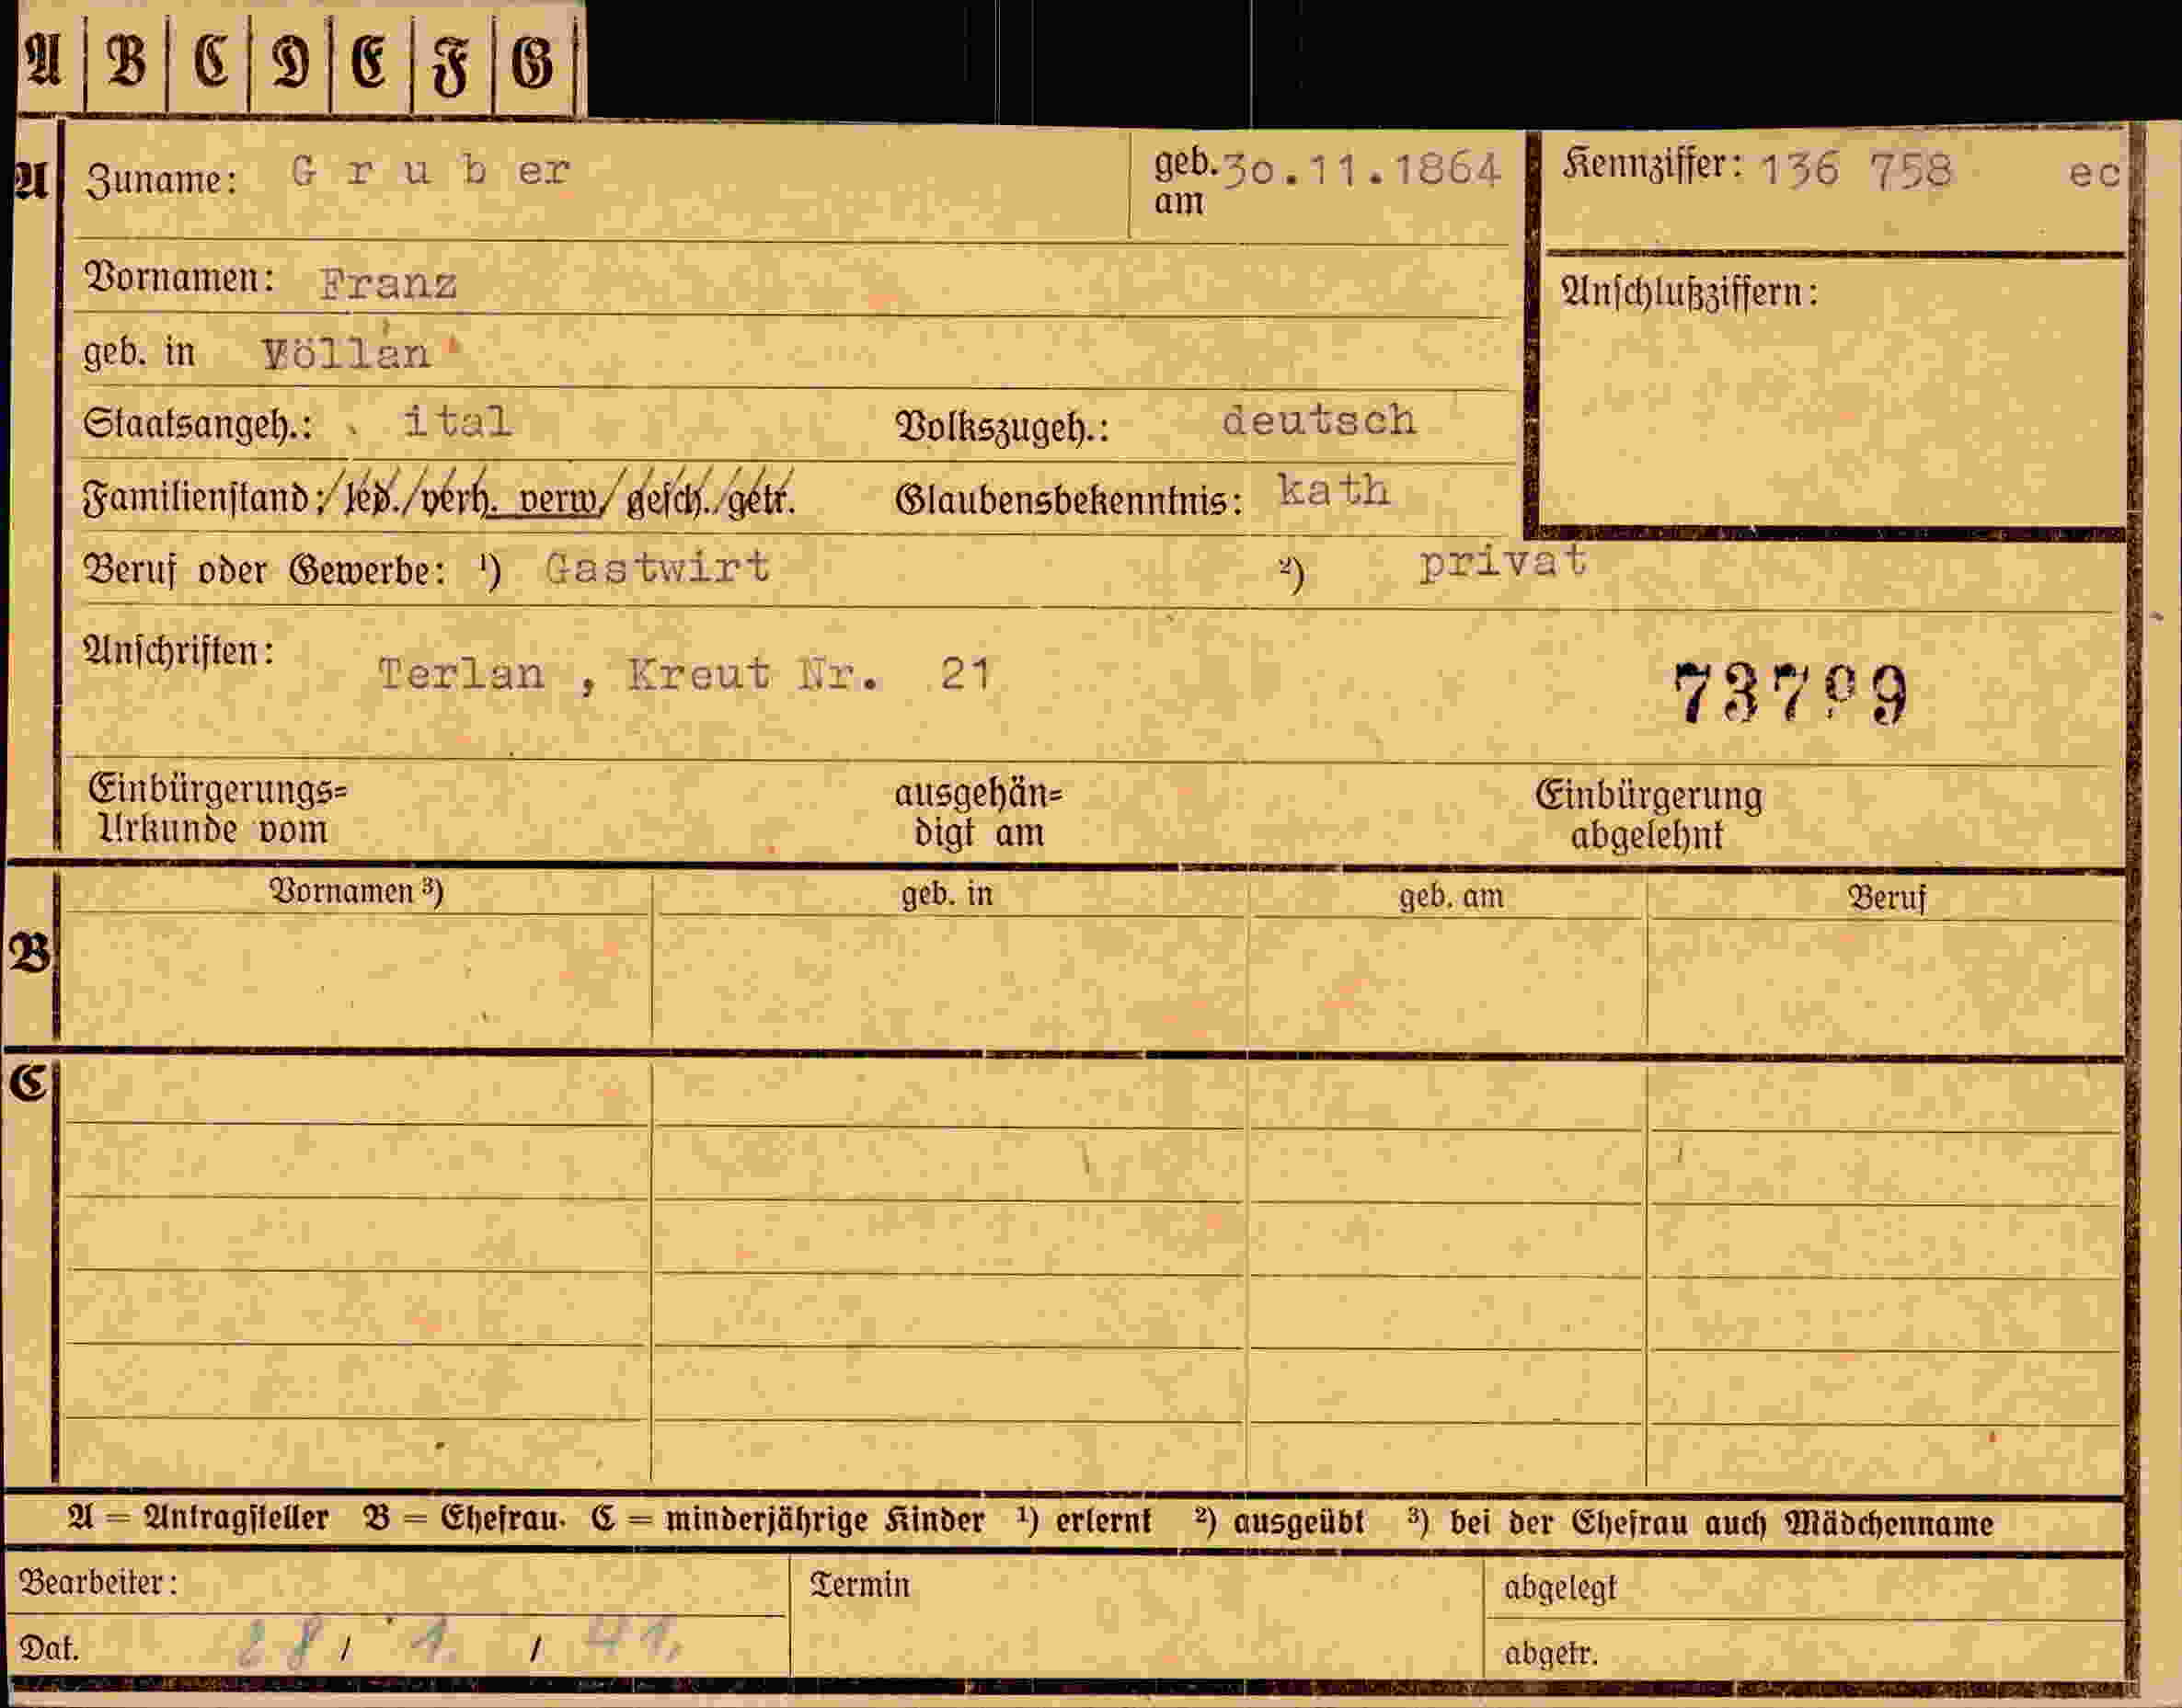 A B C D E F G
A
Zuname: Gruber geb. am 30.11.1864 Kennziffer: 136 758 ec
Vornamen: Franz Anschlußziffern:
geb. in Völlan
Staatsangeh.: ital Volkszugeh.: deutsch
Familienstand: led./verh. verw/gesch./getr. Glaubensbekenntnis: kath
Beruf oder Gewerbe: ¹) Gastwirt ²) privat
Anschriften: Terlan , Kreut Nr. 21 73799
Einbürgerungs= ausgehän= Einbürgerung
Urkunde vom digt am abgelehnt
Vornamen ³) geb. in geb. am Beruf
B
C
A = Antragsteller B = Ehefrau. C = minderjährige Kinder ¹) erlernt ²) ausgeübt ³) bei der Ehefrau auch Mädchenname
Bearbeiter: Termin abgelegt
Dat. 28 / 1. / 41. abgetr.